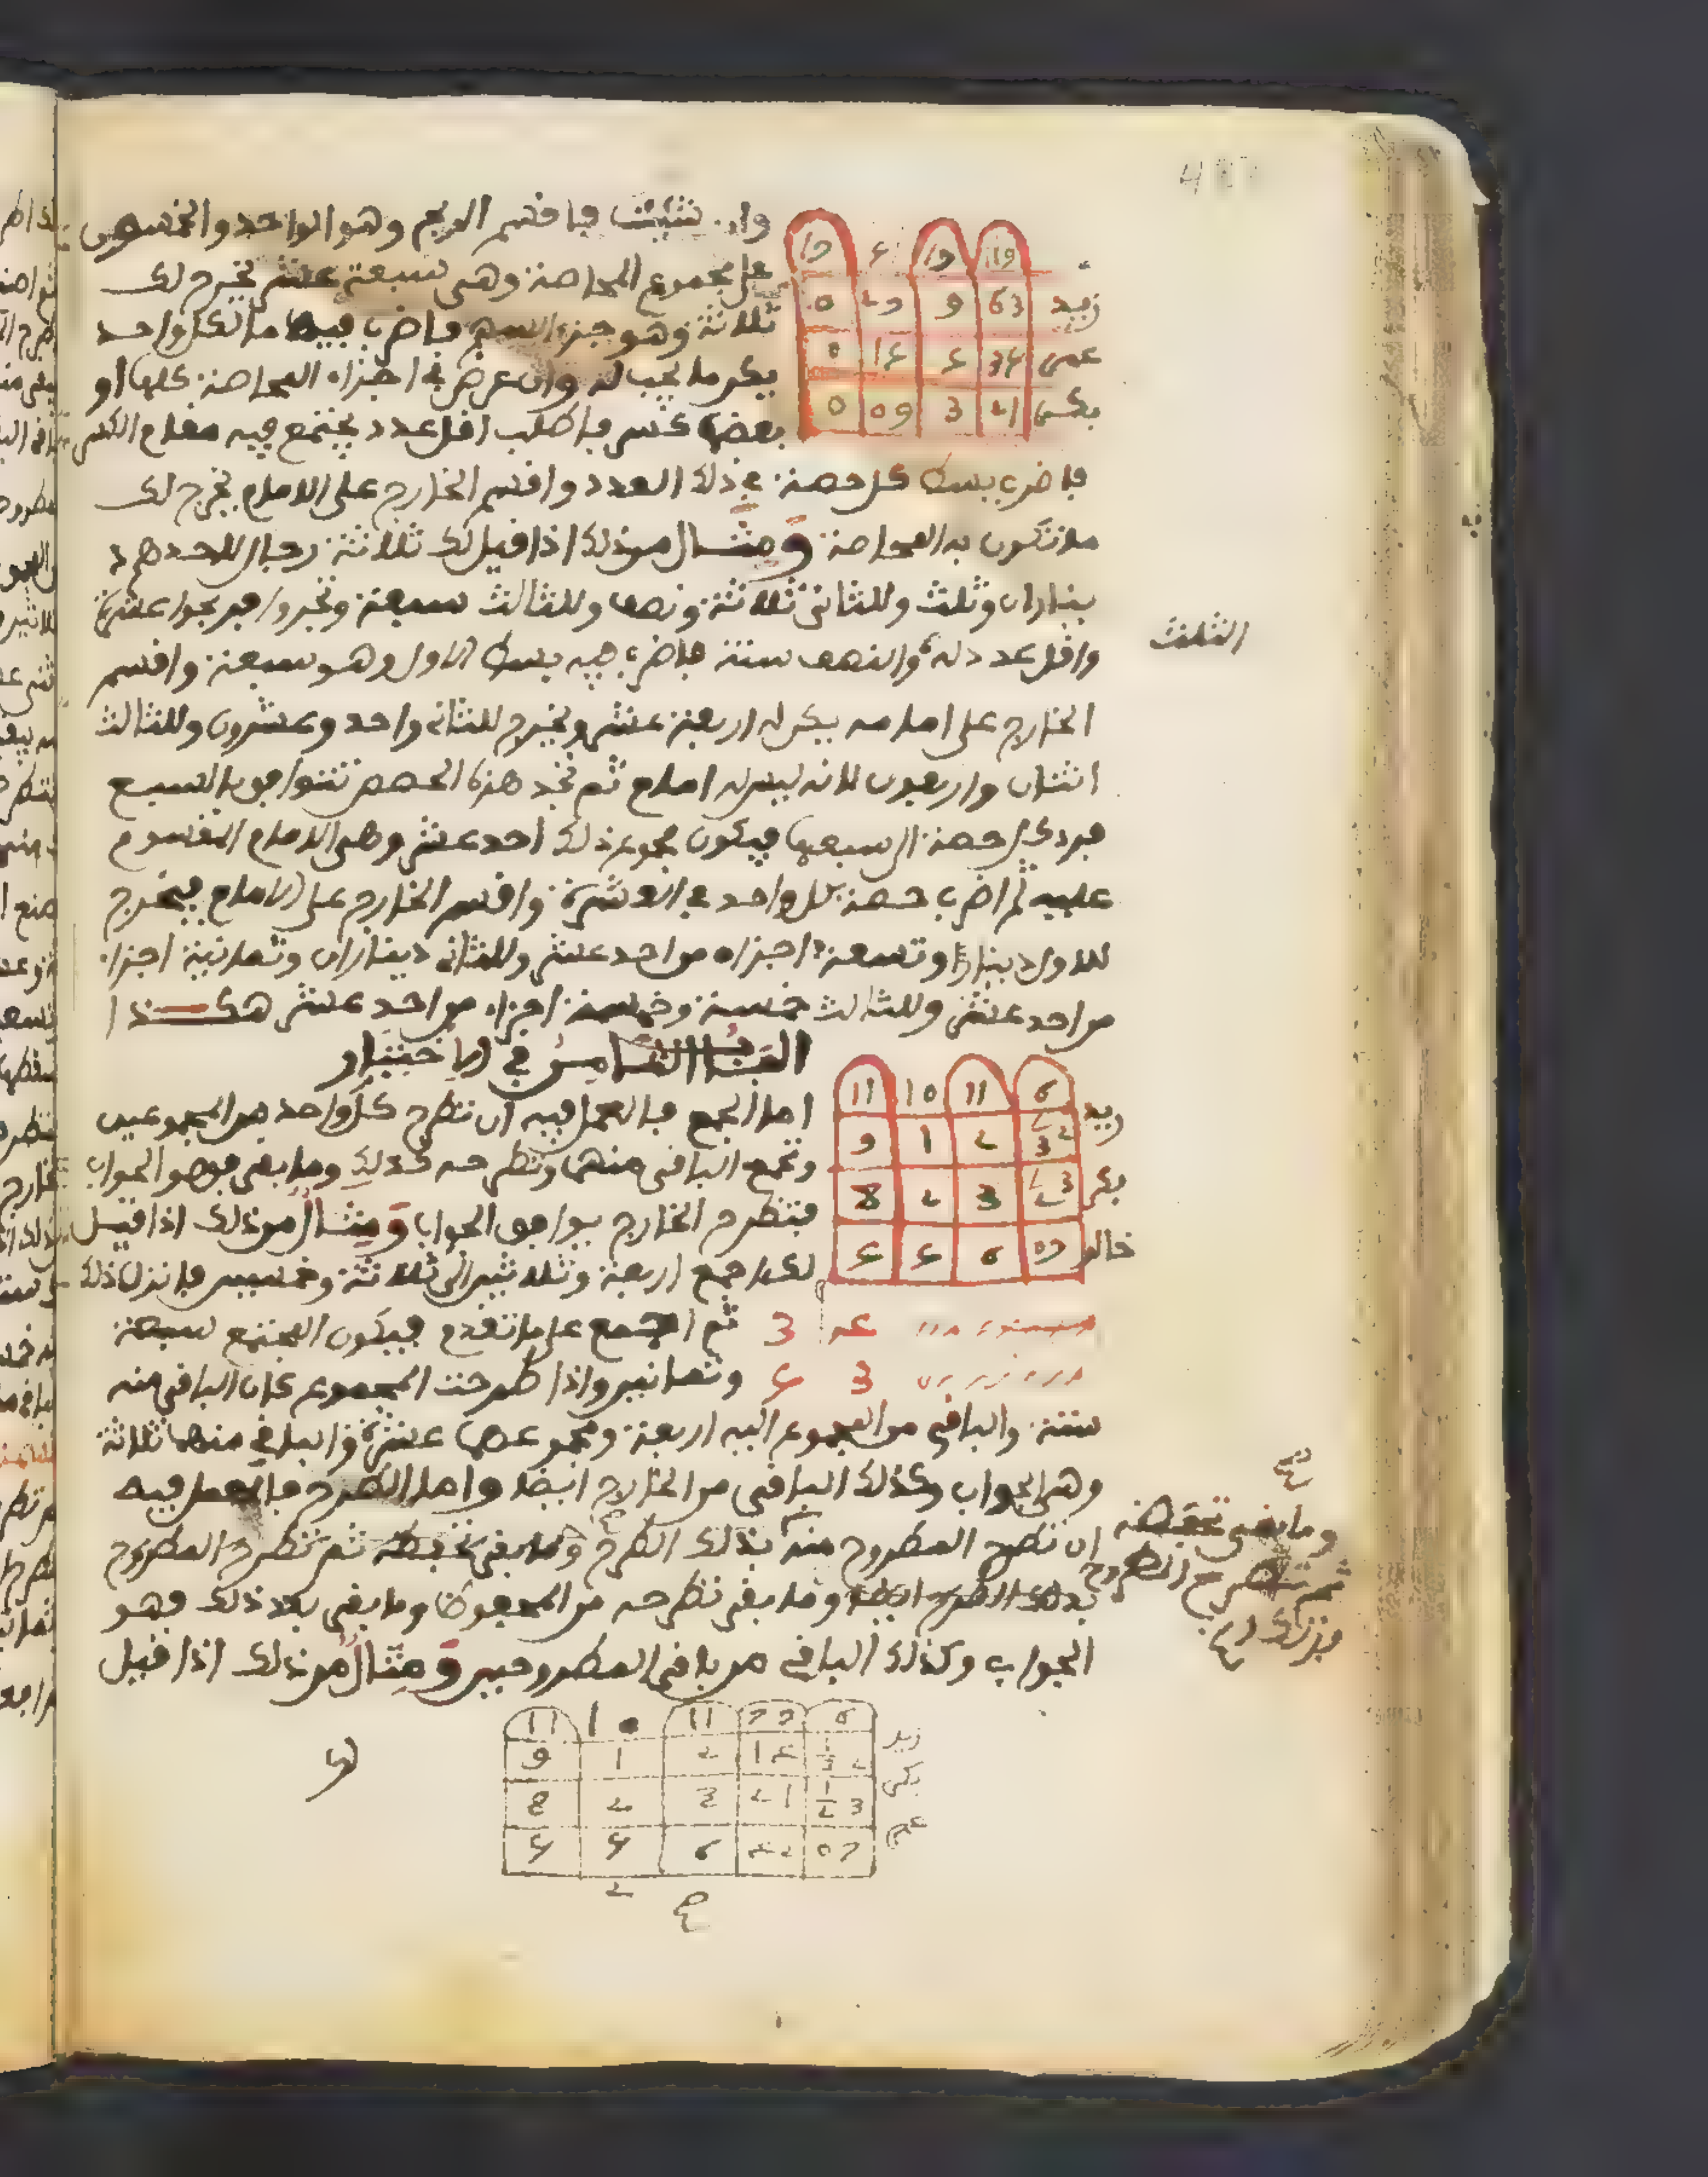 وان شئت فاقسم الربح وهو الواحد والخمسون
على مجموع المحاصة وهي سبعة عشر يخرج لك
ثلاثة وهو جزء السهم فاضرب فيها ما لكل واحد
يكن ما يجب له وان عرض في اجزاء المحاصة كلها او
بعضها كسر فاطلب اقل عدد يجتمع فيه مقام الكسر
فاضرب بسط كل حصة في ذلك العدد واقسم الخارج على الامام يخرج لك
ما تكون به المحاصة ومثال من ذلك اذا قيل لك ثلاثة رجال لاحدهم د
يناران وثلث وللثاني ثلاثة ونصف وللثالث سبعة وتجروا فربحوا عشرة
واقل عدد له والنصف ستة فاضرب فيه بسط الاول وهو سبعة واقسم
الثلث
الخارج على امامه يكن له اربعة عشر ويخرج للثاني واحد وعشرون وللثالث
اثنان واربعون لانه ليس له امام ثم تجد هذه الحصص تتوافق بالسبع
فرد كل حصة الى سبعها فيكون مجموع ذلك احد عشر وهي الامام المقسوم
عليه ثم اضرب حصة كل واحد في العشرة واقسم الخارج على الامام فيخرج
للاول دينار وتسعة اجزاء من احد عشر وللثاني ديناران وثمانية اجزاء
من احد عشر وللثالث خمسة وخمسة اجزاء من احد عشر هكذا
الباب الخامس في الاختبار
اما الجمع فالعمل فيه ان تطرح كل واحد من المجموعين
وتجمع الباقي منهما وتطرحه كذلك وما بقي فهو الجواب
فتطرح الخارج يوافق الجواب ومثال من ذلك اذا قيل
لك اجمع اربعة وثلاثين الى ثلاثة وخمسين فانزل ذلك
ثم اجمع على ما تقدم فيكون المجتمع سبعة
وثمانين واذا طرحت المجموع كان الباقي منه
ستة والباقي من المجموع اليه اربعة ومجموعهما عشرة والباقي منها ثلاثة
وهي الجواب وكذلك الباقي من الخارج ايضا واما الطرح فالعمل فيه
ان تطرح المطروح منه بذلك الطرح وما بقي تحفظه ثم تطرح المطروح
وما بقي تحفظه
ثم تطرح المطروح
بذلك الطرح ايضا وما بقي تطرحه من المحفوظ وما بقي بعد ذلك فهو
الجواب وكذلك الباقي من باقي المطروحين ومثال من ذلك اذا قيل
زيد
عمر
بكر
زيد
بكر
خالد
زيد
بكر
عمر